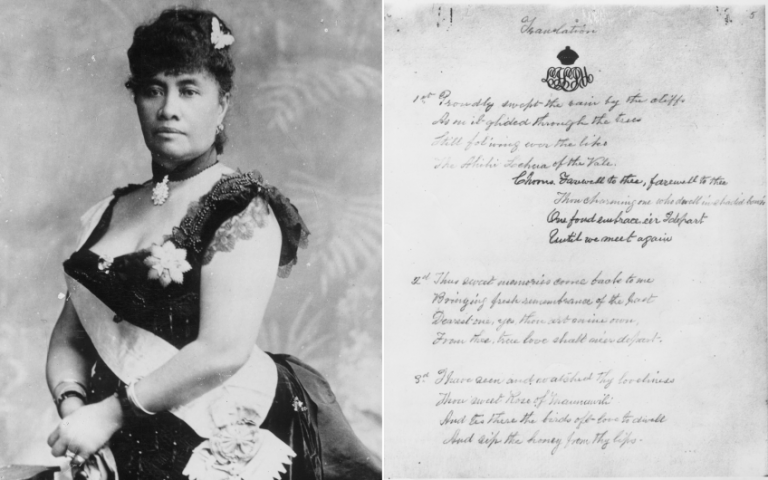 5
Translation
1st Proudly swept the rain by the cliffs
As on it glided through the trees
Still following ever the liko
The Ahihi Lehua of the Vale.
Chorus Farewell to thee, farewell to thee
Thou charming one who dwell in shaded bowers
One fond embrace e'er I depart
Until we meet again
2nd Thus sweet memories come back to me
Bringing fresh remembrance of the past
Dearest one, yes, thou art mine own,
From thee, true love shall ne'er depart.
3rd I have seen and watched thy loveliness
Thou sweet Rose of Maunawili
And tis there the birds oft love to dwell
And sip the honey from thy lips.